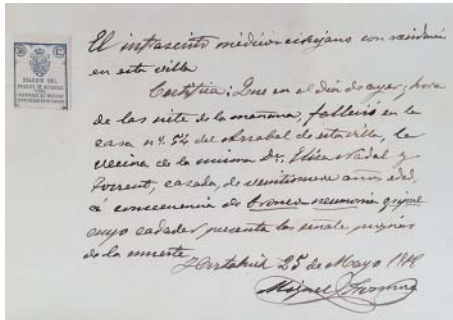 El infrascrito médico cirujano con residencia
en esta villa
Certifica: Que en el día de ayer y hora
de las siete de la mañana, falleció en la
casa nº. 54 del Arrabal de esta villa, la
vecina de la misma Dª. Elisa Nadal y
Torrent, casada, de veintinueve años edad,
á consecuencia de bronco-neumonia gripal
cuyo cadaver presenta las señales propias
de la muerte
25 de Mayo 1918
Miguel
COLEGIO DEL